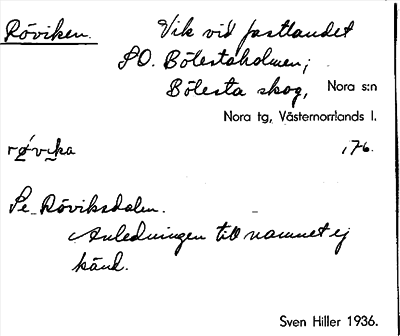 Röviken.
Vik vid fastlandet
SO. Bölestaholmen;
Bölesta skog, Nora s:n
Nora tg, Västernorrlands l.
røvika 176.
Se Röviksdalen.
Anledningen till namnet ej
känd.
Sven Hiller 1936.